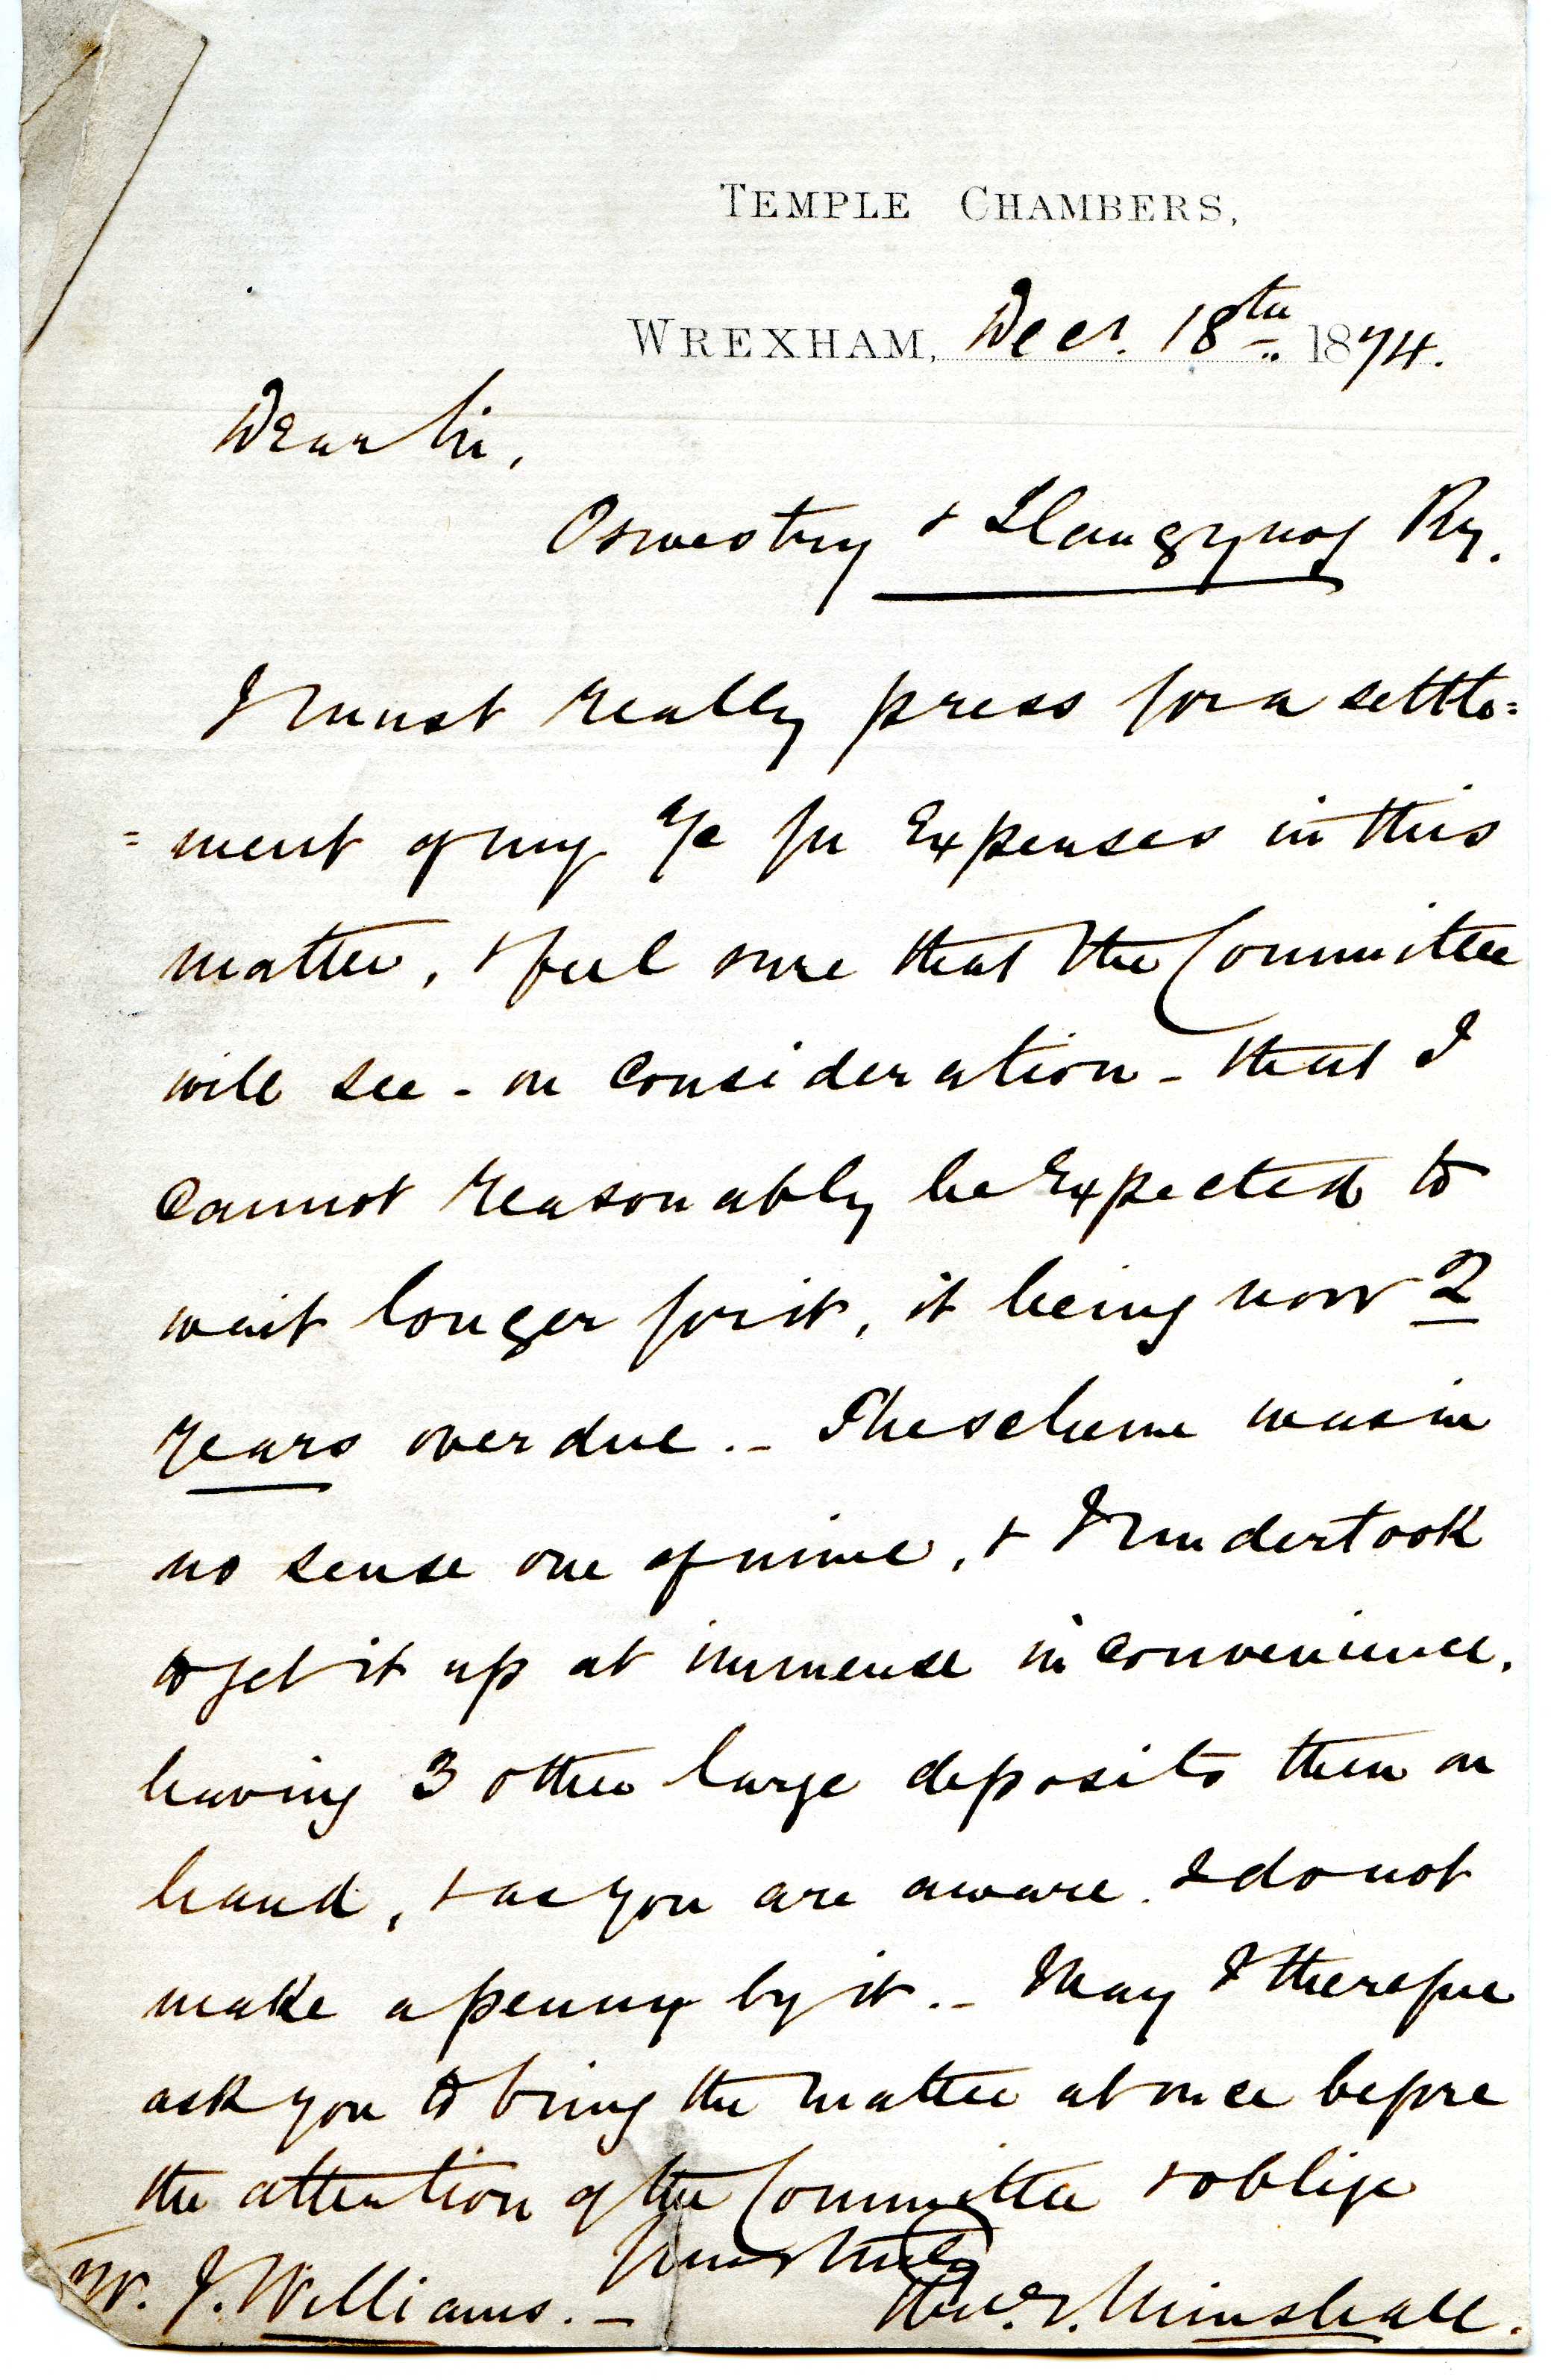 TEMPLE CHAMBERS,
WREXHAM, Decr. 18th 1874.
Dear Sir,
Oswestry & Llangynog Ry.
I must really press for a settle=
=ment of my a/c for Expenses in this
matter, & feel sure that the Committee
will see - on Consideration - that I
Cannot reasonably be Expected to
wait longer for it, it being now 2
years overdue. - The scheme was in
no sense one of mine, & I undertook
to get it up at immense inconvenience,
having 3 other large deposits then on
hand, & as you are aware I do not
make a penny by it. - May I therefore
ask you to bring the matter at once before
the attention of the Committee & oblige
Yours truly
W. J. Williams. - Minshall.